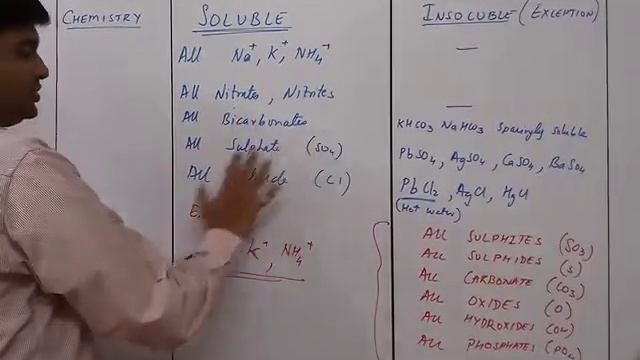 CHEMISTRY
SOLUBLE
All Na+, K+, NH4+
All Nitrates, Nitrites
All Bicarbonates
All Sulphate (SO4)
All (Cl)
K+, NH4+
INSOLUBLE (EXCEPTION)
—
—
KHCO3 NaHCO3 Sparingly Soluble
PbSO4, AgSO4, CaSO4, BaSO4
PbCl2, AgCl, HgCl
(Hot water)
All SULPHITES (SO3)
All SULPHIDES (S)
All CARBONATE (CO3)
All OXIDES (O)
All HYDROXIDES (OH)
All PHOSPHATES (PO4)